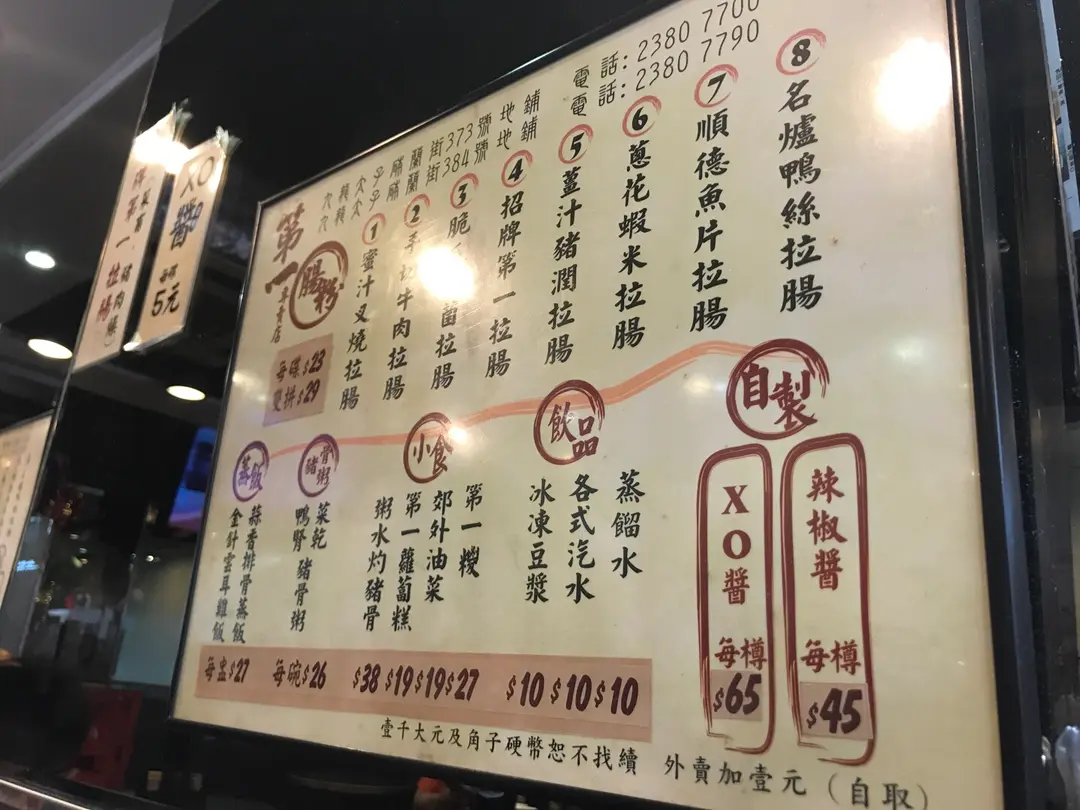 XO醬
每碟
5元
第一腸粉專賣店
砵蘭街373號地鋪
砵蘭街384號地鋪
電話:2380 7700
電話:2380 7790
每碟$23
雙拼$29
①蜜汁叉燒拉腸
②手切牛肉拉腸
③脆
菌拉腸
④招牌第一拉腸
⑤薑汁豬潤拉腸
⑥蔥花蝦米拉腸
⑦順德魚片拉腸
⑧名爐鴨絲拉腸
蒸飯
金針雲耳雞飯
蒜香排骨蒸飯
每盅$27
豬骨粥
菜乾鴨腎豬骨粥
每碗$26
小食
粥水灼豬骨
$38
第一蘿蔔糕
$19
郊外油菜
$19
第一糉
$27
飲品
冰凍豆漿
$10
各式汽水
$10
蒸餾水
$10
自製
XO醬
每樽
$65
辣椒醬
每樽
$45
壹千大元及角子硬幣恕不找續
外賣加壹元(自取)